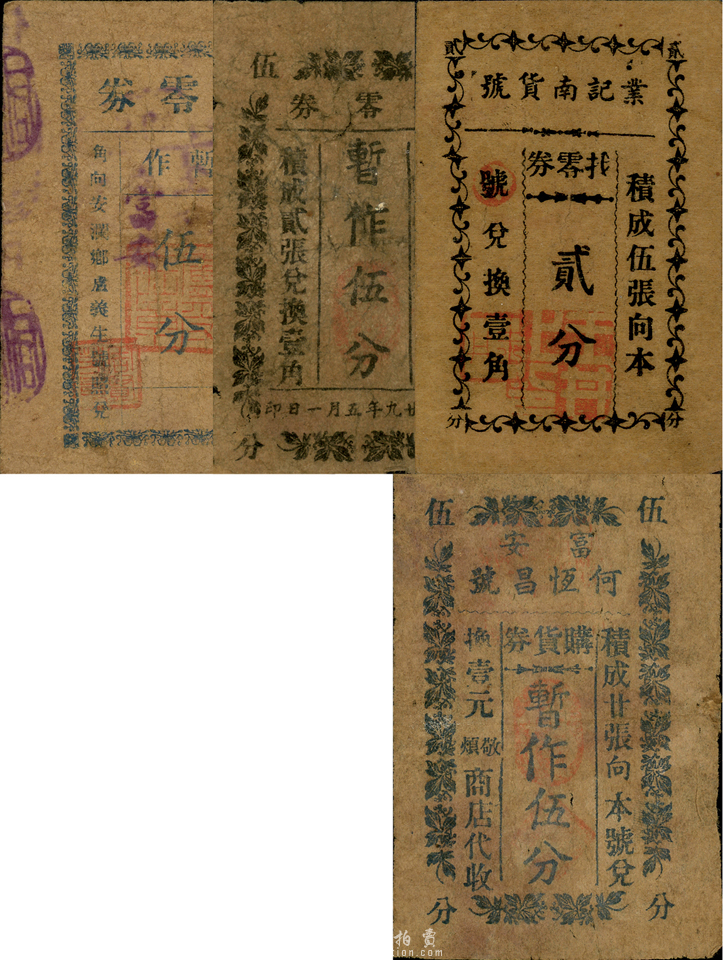 零券
暫作
伍分
角向安灃鄉盧義生號照兌
富安
伍
零券
積成貳張兌換壹角
暫作伍分
廿九年五月一日印
分
貳 貳
業記南貨號
找零券
積成伍張向本
貳分
號兌換壹角
分 分
伍 伍
富安
何恆昌號
購貨券
積成廿張向本號兌
暫作伍分
換壹元敬煩商店代收
分 分
拍賣